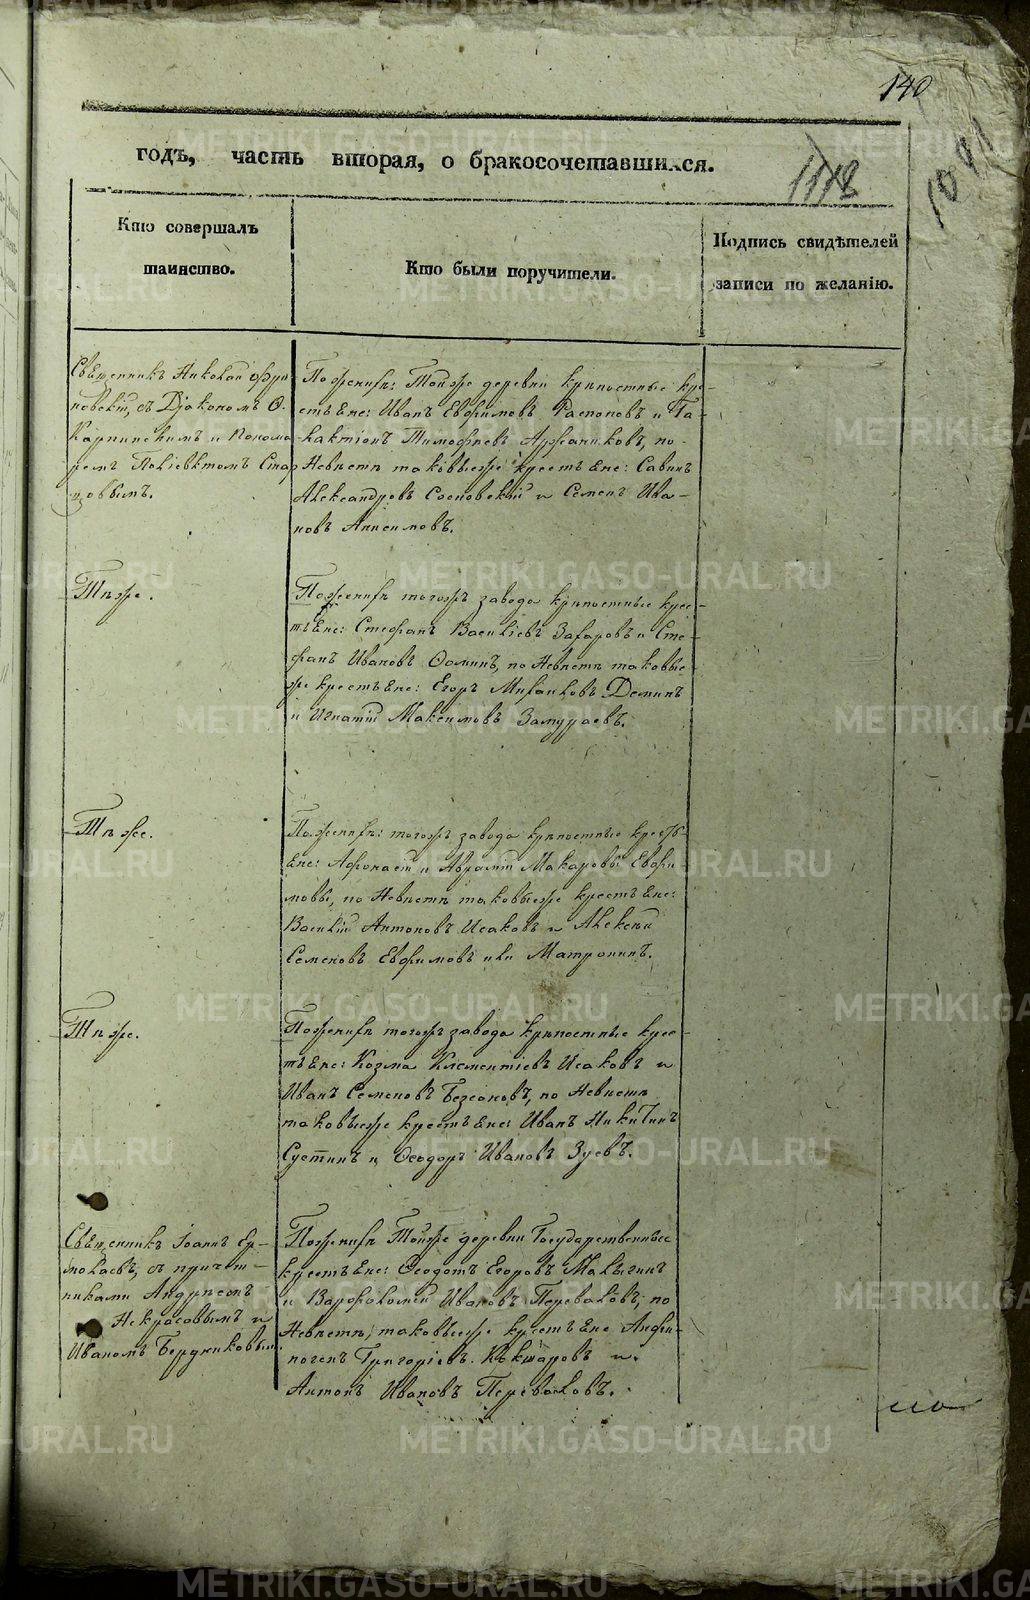 140
годъ, часть вторая, о бракосочетавшихся.
1118
Кто совершалъ
таинство.
Кто были поручители.
Подпись свидѣтелей
записи по желанію.
Священникъ Николай
съ Діакономъ Ѳ.
Карпинскимъ и Понома
ремъ Поліевктомъ Стар
цовымъ.
По женихѣ: Тойже деревни крѣпостные кре-
стьяне: Иванъ Евфимовъ Распоповъ и Га-
лактіонъ Тимофеевъ по
Невѣстѣ таковыеже крестьяне: Савинъ
Александровъ Сосновскій и Семенъ Ива-
новъ Анисимовъ.
Тѣже.
По женихѣ тогожъ завода крѣпостные крес-
тьяне: Стефанъ Василіевъ Захаровъ и Сте-
фанъ Ивановъ Ѳоминъ, по Невѣстѣ таковые
же крестьяне: Егоръ Михайловъ Деминъ
и Игнатій Максимовъ Замураевъ.
Тѣ же.
По женихѣ: тогожъ завода крѣпостные кресть-
яне: Афонасій и Аврамій Макаровы Евфи
мовы, по Невѣстѣ таковыеже крестьяне:
Василій Антоновъ Исаковъ и Алексѣй
Семеновъ Евфимовъ или Матронинъ.
Тѣ же.
По женихѣ тогожъ завода крѣпостные крес-
тьяне: Козма Клементіевъ Исаковъ и
Иванъ Семеновъ Безсоновъ, по Невѣстѣ
таковыеже крестьяне: Иванъ Никитинъ
Сустинъ и Ѳеодоръ Ивановъ Зуевъ.
Священникъ Іоаннъ Ер-
молаевъ, съ причет-
никами Андреемъ
Некрасовымъ и
Иваномъ Бердниковым.
По женихѣ Тойже деревни Государственные
крестьяне: Ѳеодотъ Егоровъ Малыгинъ
и Варфоломей Ивановъ Переваловъ, по
Невѣстѣ, таковыеже крестьяне Анфи-
ногенъ Григоріевъ Кокшаровъ и
Антонъ Ивановъ Переваловъ.
METRIKI.GASO-URAL.RU